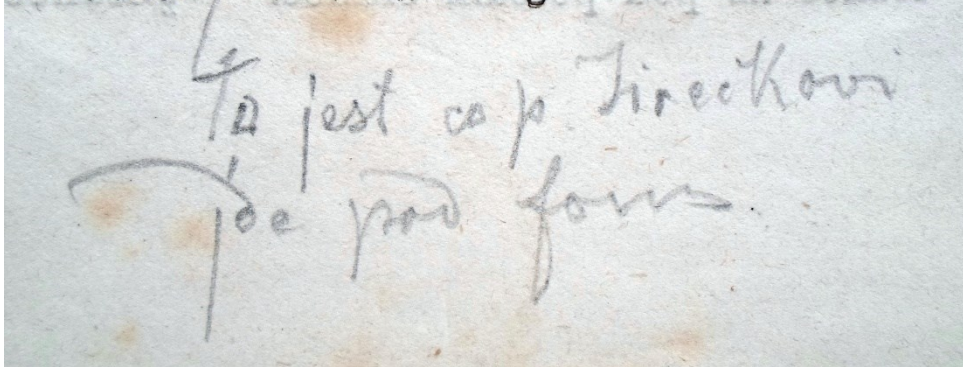 To jest co p Jirečkovi
jde pod fous.